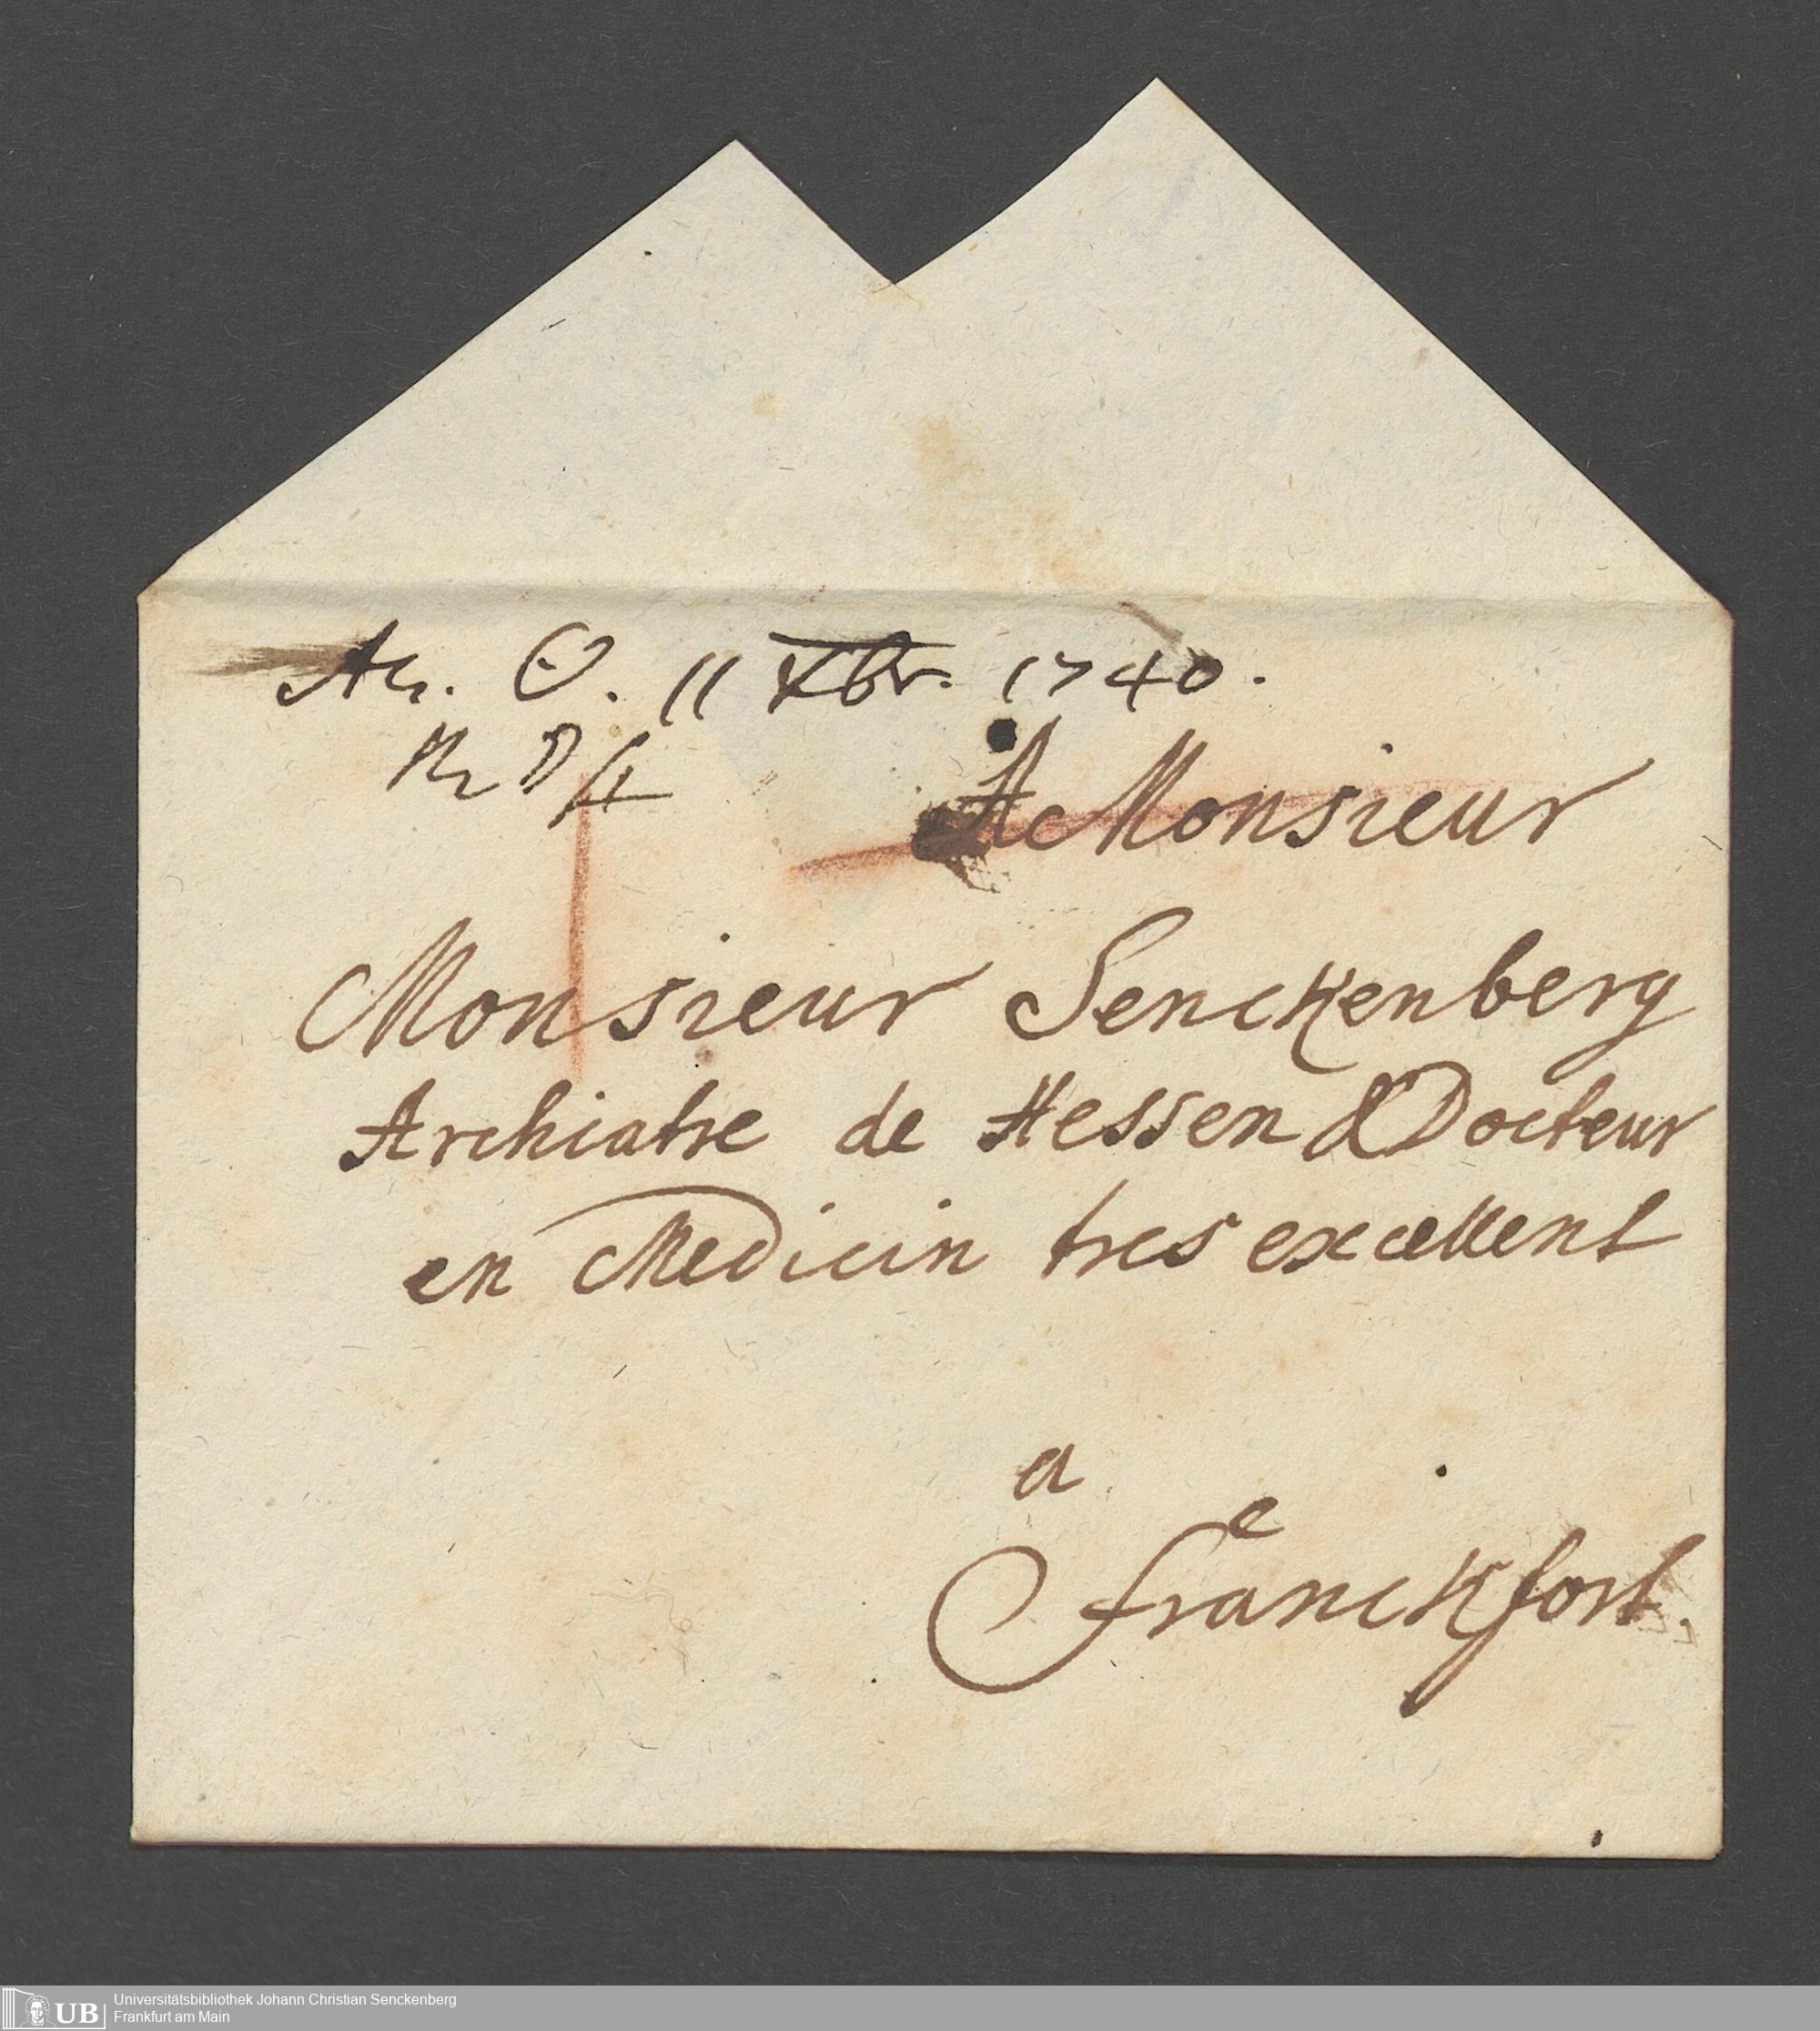 Ac. ☉. 11 Xbr. 1740.
A Monsieur
Monsieur Senckenberg
Archiatre de Hessen & Docteur
en Medicin tres excellent
a
Franckfort.
UB
Universitätsbibliothek Johann Christian Senckenberg
Frankfurt am Main